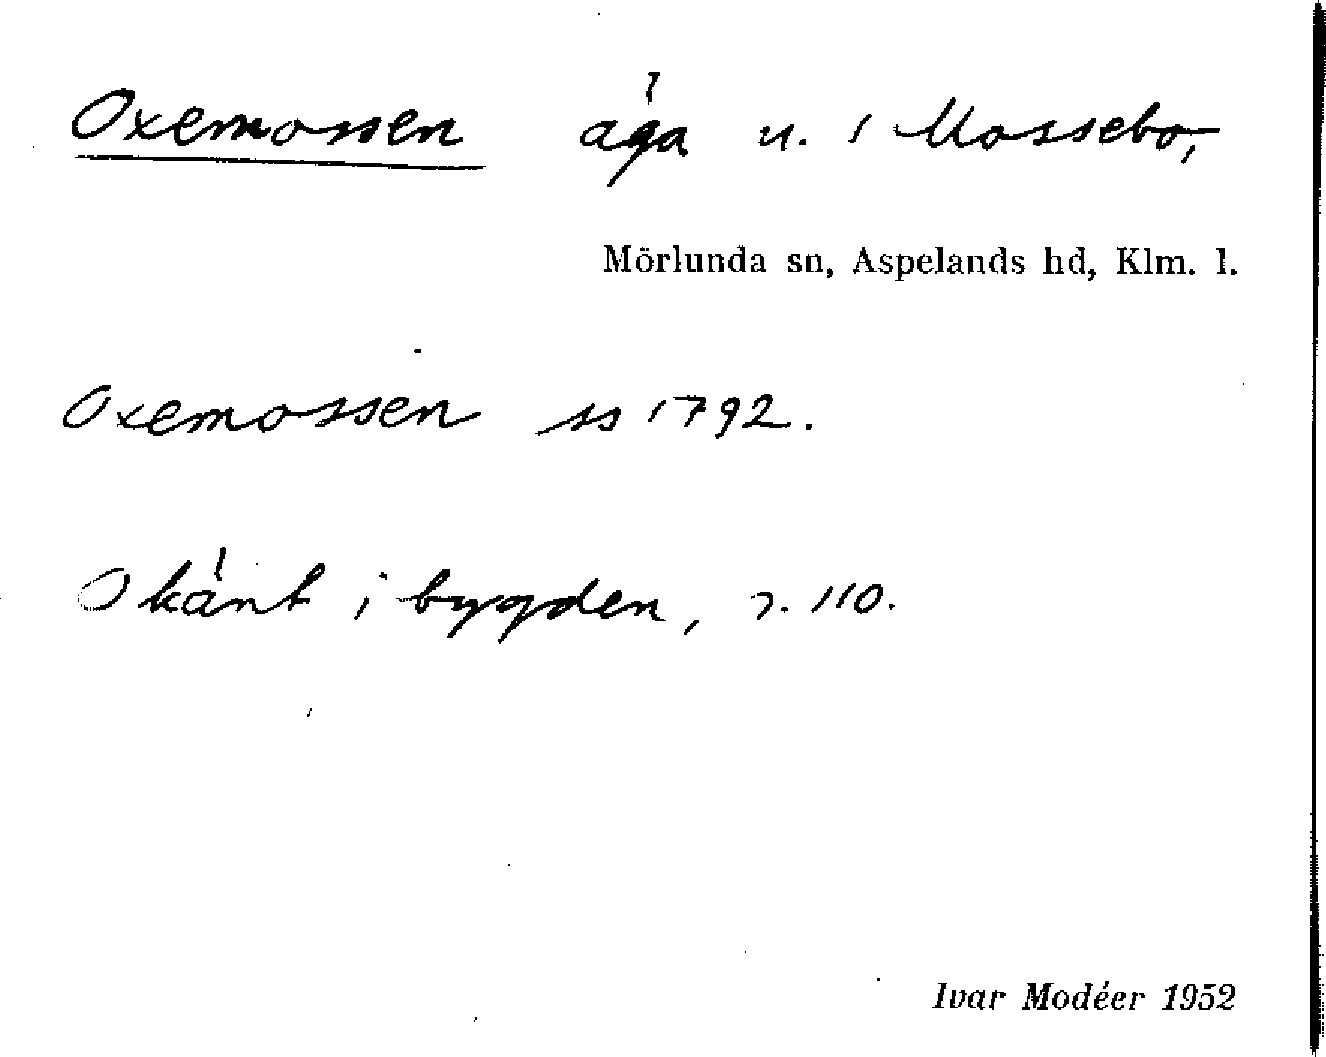 Oxemossen äga u. i Mossebo,
Mörlunda sn, Aspelands hd, Klm. l.
Oxemossen ss 1792.
Okänt i bygden, s. 110.
Ivar Modéer 1952